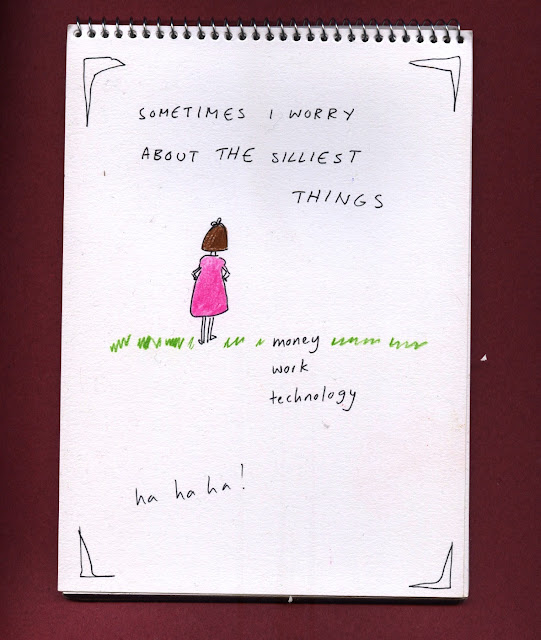 SOMETIMES I WORRY
ABOUT THE SILLIEST
THINGS
money
work
technology
ha ha ha!